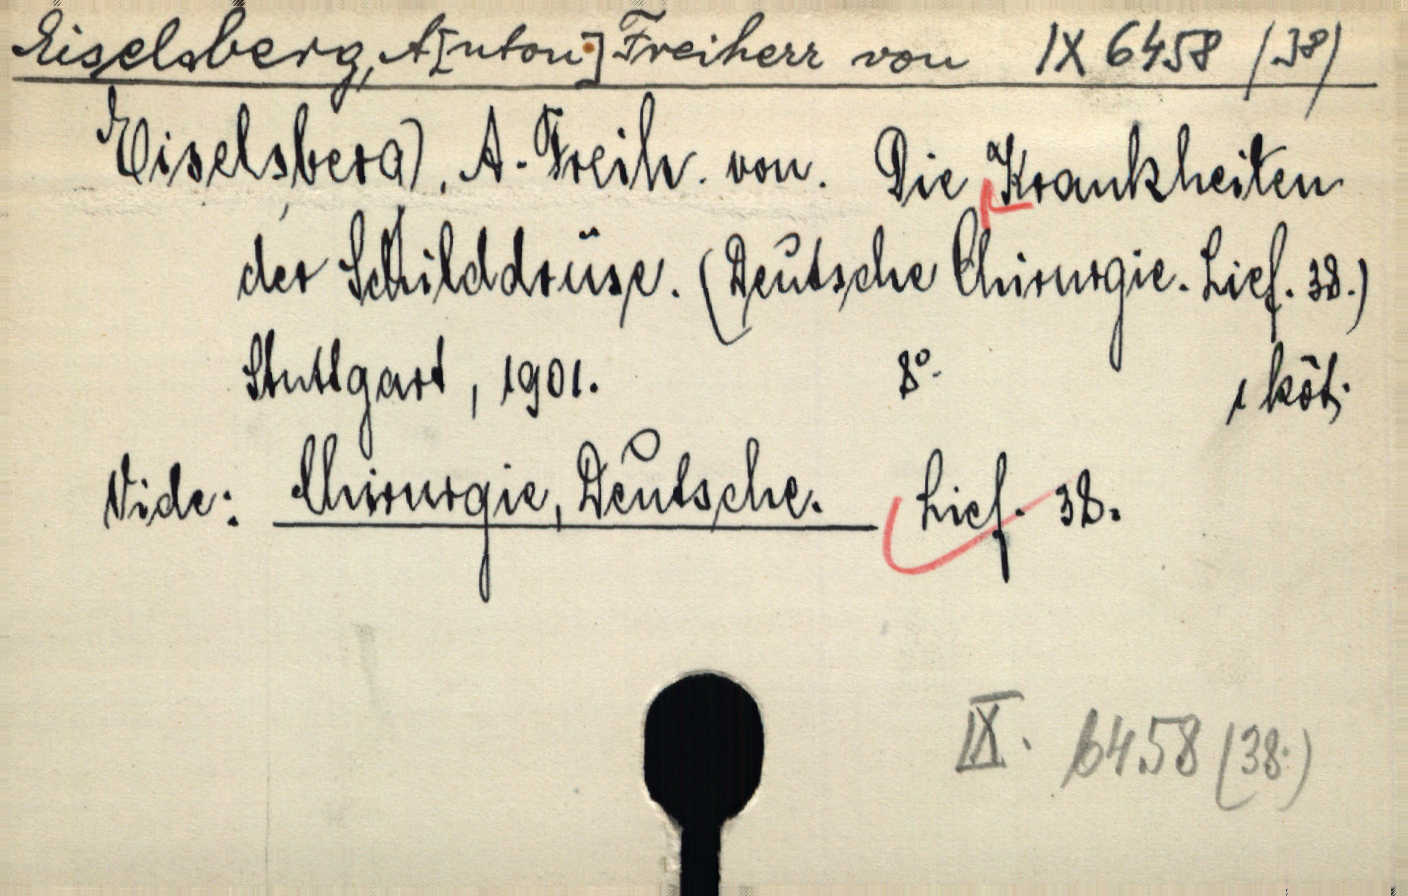 Eiselsberg, A[nton] Freiherr von IX 6458 /38/
Eiselsberg), A. Freih. von. Die Krankheiten
der Schilddrüse. (Deutsche Chirurgie. Lief. 38.)
Stuttgart, 1901. 8° 1 köt.
Vide: Chirurgie, Deutsche. Lief. 38.
IX. 6458 (38.)